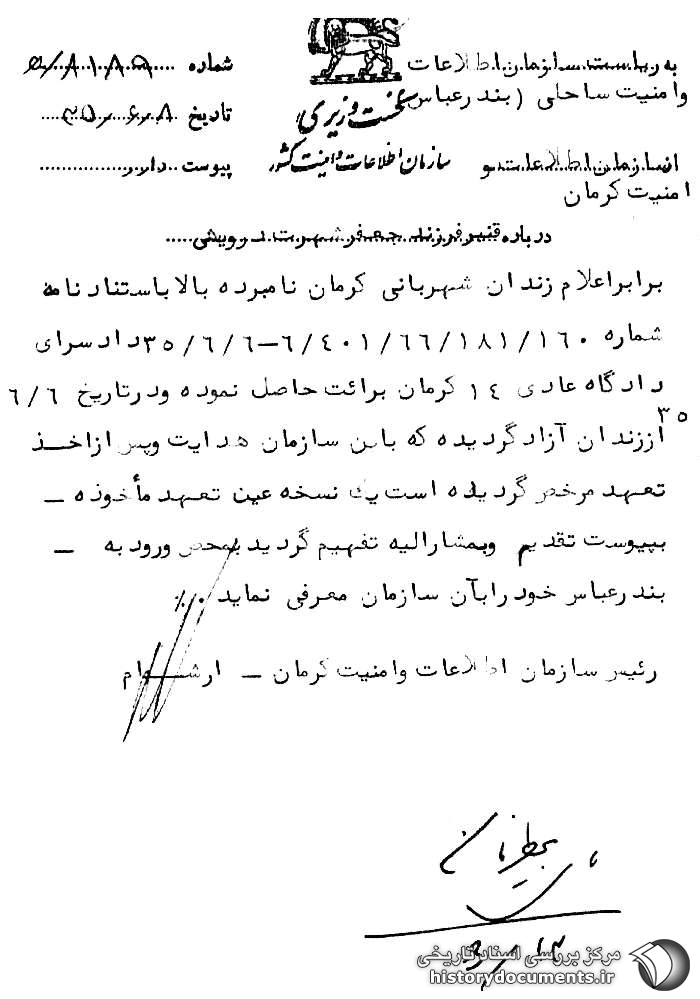 به ریاست سازمان اطلاعات
وامنیت ساحلی (بندرعباس
نخست وزیری
شماره ۵/۸۱۸۹
تاریخ ۳۵/۶/۸
از سازمان اطلاعات و
امنیت کرمان
سازمان اطلاعات و امنیت کشور
پیوست دارد
درباره قنبر فرزند جعفر شهرت درویشی
برابر اعلام زندان شهربانی کرمان نامبرده بالا باستناد نامه
شماره ۶/۴۰۱/۶۶/۱۸۱/۱۶۰–۳۵/۶/۶ دادسرای
دادگاه عادی ۱۴ کرمان برائت حاصل نموده ودرتاریخ ۶/۶
۳۵
اززندان آزاد گردیده که باین سازمان هدایت وپس ازاخذ
تعهد مرخص گردیده است یک نسخه عین تعهد مأخوذه –
بپیوست تقدیم وبمشارالیه تفهیم گردید بمحض ورود به –
بندرعباس خود رابآن سازمان معرفی نماید ۰٪
رئیس سازمان اطلاعات وامنیت کرمان – ارشام
مرکز بررسی اسناد تاریخی
historydocuments.ir